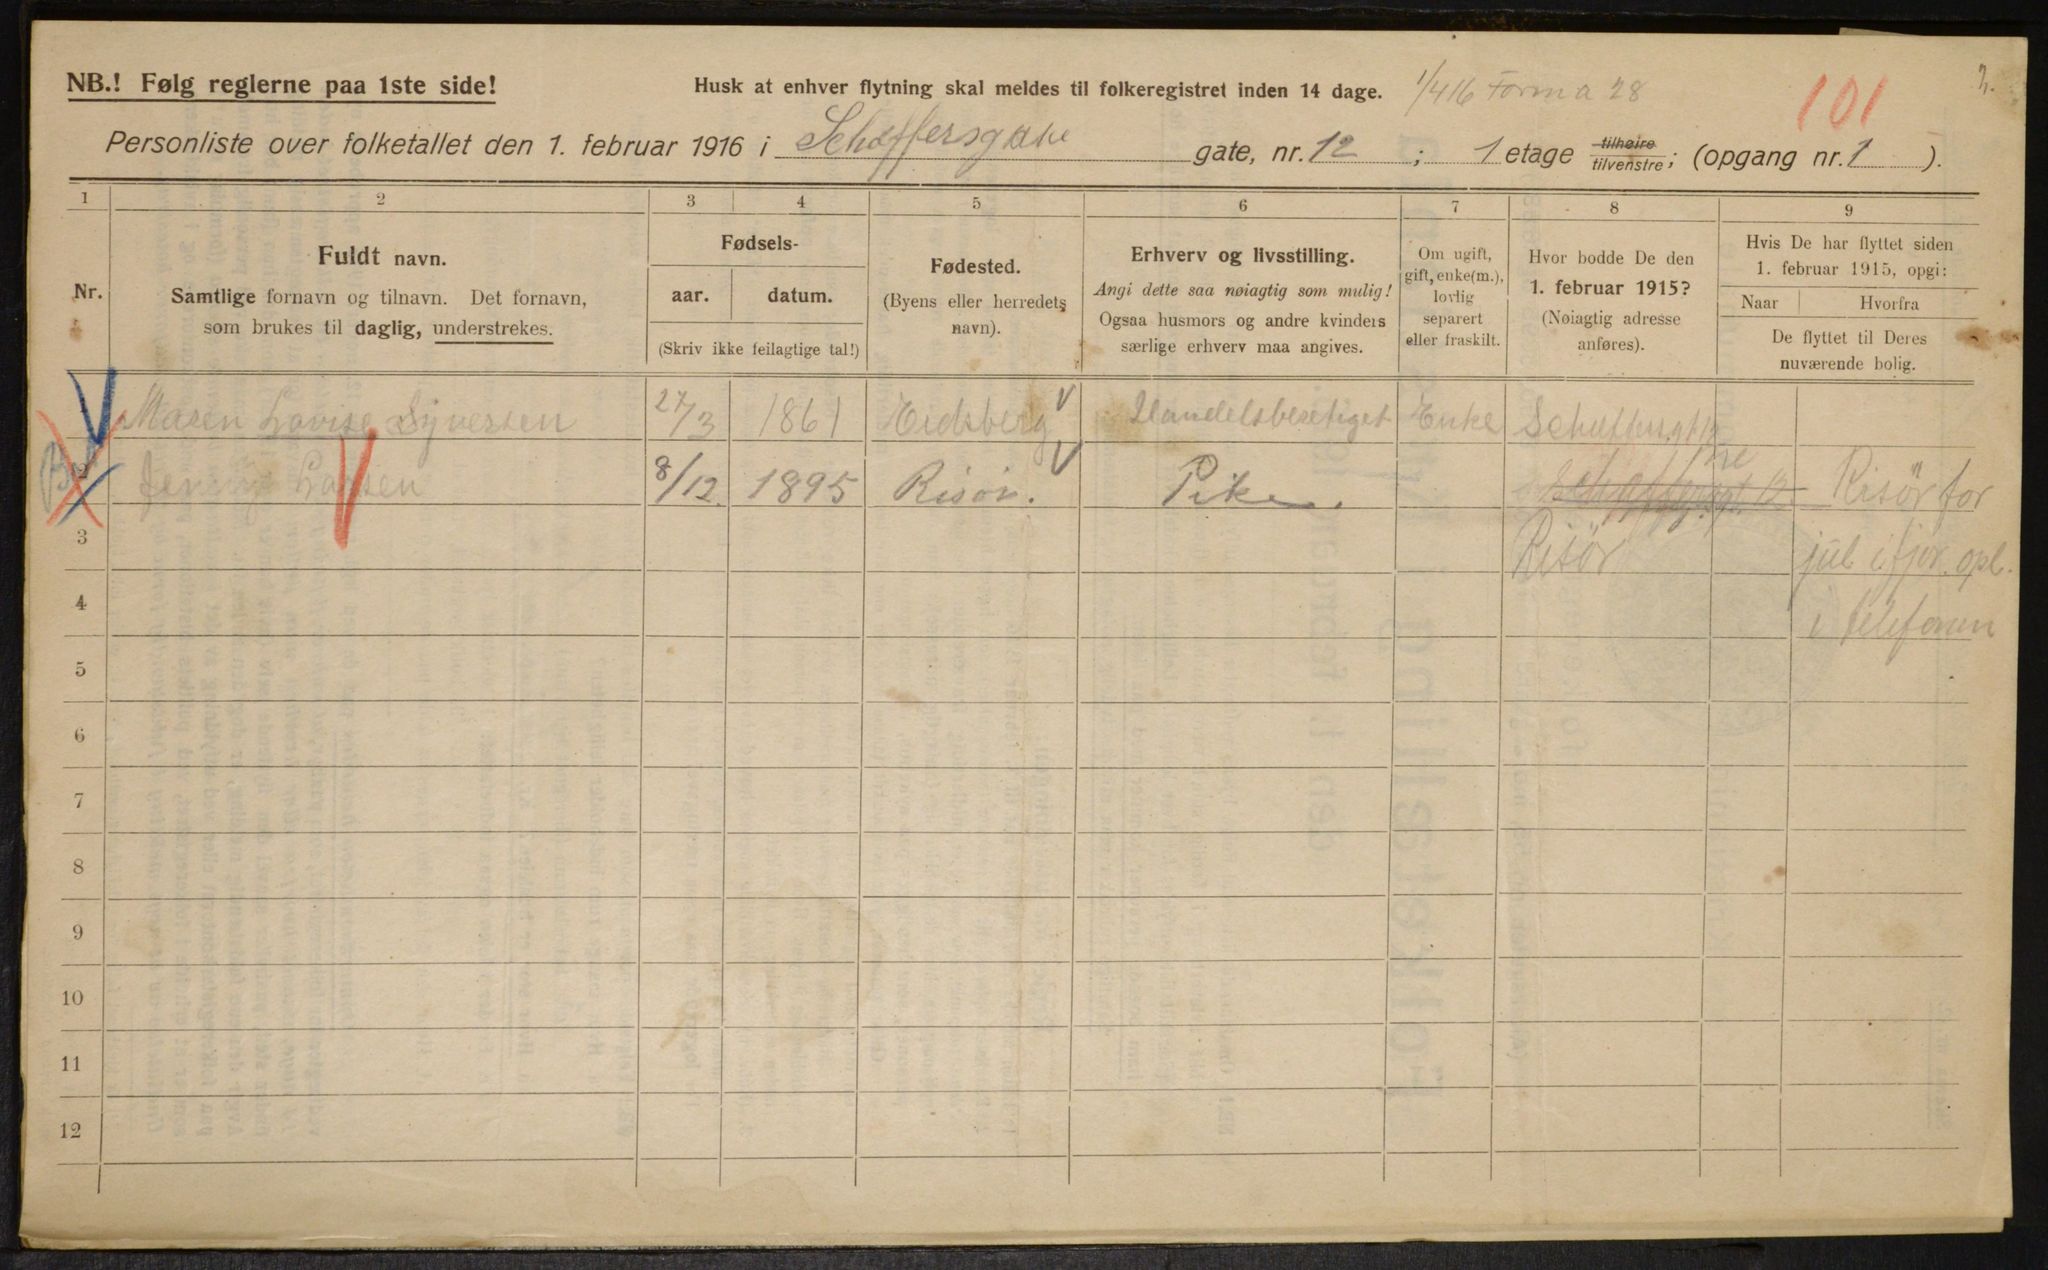 NB.! Følg reglerne paa 1ste side!
Husk at enhver flytning skal meldes til folkeregistret inden 14 dage.
1/4 16 Forma 28
101
2.
Personliste over folketallet den 1. februar 1916 i Scheffersgate gate, nr. 12 ; 1 etage tilhøire tilvenstre; (opgang nr. 1 ).
1 2 3 4 5 6 7 8 9
Nr.
Fuldt navn.
Samtlige fornavn og tilnavn. Det fornavn,
som brukes til daglig, understrekes.
Fødsels-
aar. datum.
(Skriv ikke feilagtige tal!)
Fødested.
(Byens eller herredets
navn).
Erhverv og livsstilling.
Angi dette saa nøiagtig som mulig!
Ogsaa husmors og andre kvinders
særlige erhverv maa angives.
Om ugift,
gift, enke(m.),
lovlig
separert
eller fraskilt.
Hvor bodde De den
1. februar 1915?
(Nøiagtig adresse
anføres).
Hvis De har flyttet siden
1. februar 1915, opgi:
Naar Hvorfra
De flyttet til Deres
nuværende bolig.
Maren Lovise Syversen 27/3 1861 Eidsberg Handelsberetiget Enke Scheffersgt 12
2 Jenny Larsen 8/12 1895 Risør. Pike. Scheffersgt. 12 Risör for
3 Risör jul i fjor. opl.
4 i telefonen
5
6
7
8
9
10
11
12